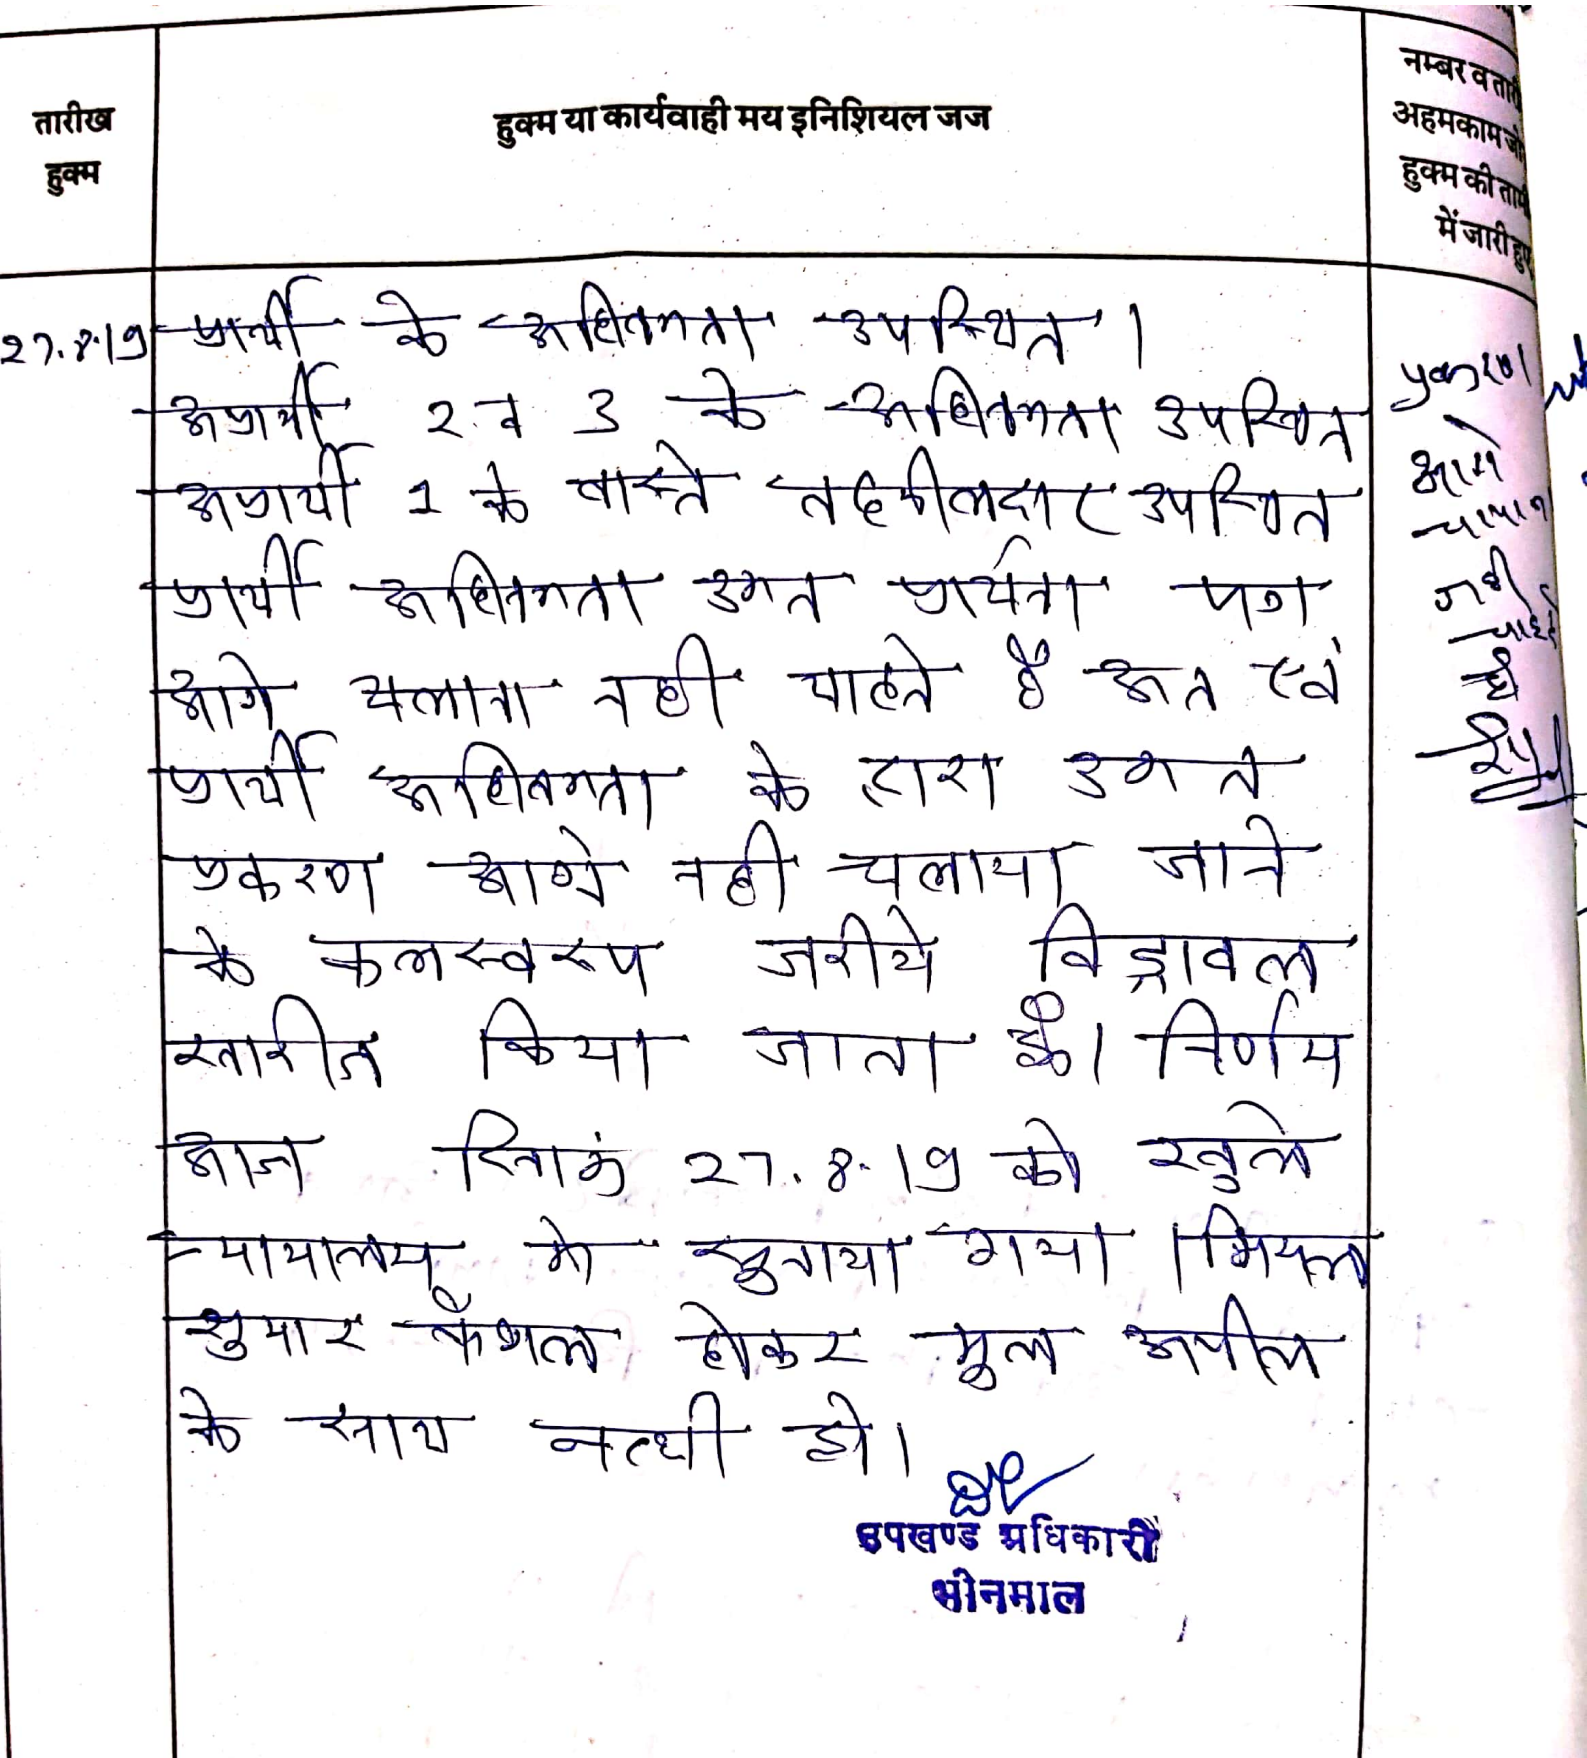 तारीख
हुक्म
हुक्म या कार्यवाही मय इनिशियल जज
नम्बर व
अहमकाम जो
हुक्म की
में जारी हुए
27.8.19
प्रार्थी के अधिवक्ता उपस्थित ।
अप्रार्थी 2 व 3 के अधिवक्ता उपस्थित
अप्रार्थी 1 के वास्ते तहसीलदार उपस्थित
प्रार्थी अधिवक्ता उक्त प्रार्थना पत्र
आगे चलाना नही चाहते है अत एवं
प्रार्थी अधिवक्ता के द्वारा उक्त
प्रकरण आगे नही चलाया जाने
के फलस्वरूप जरीये विड्रावल
खारीज किया जाता है। निर्णय
आज दिनाकं 27.8.19 को खुले
न्यायालय मे सुनाया गया ।
सुमार फैशल होकर मुल अपील
के साथ नत्थी हो।
प्रकरण
आगे
चलाना
नही
चाहते
है
उपखण्ड अधिकारी
भीनमाल